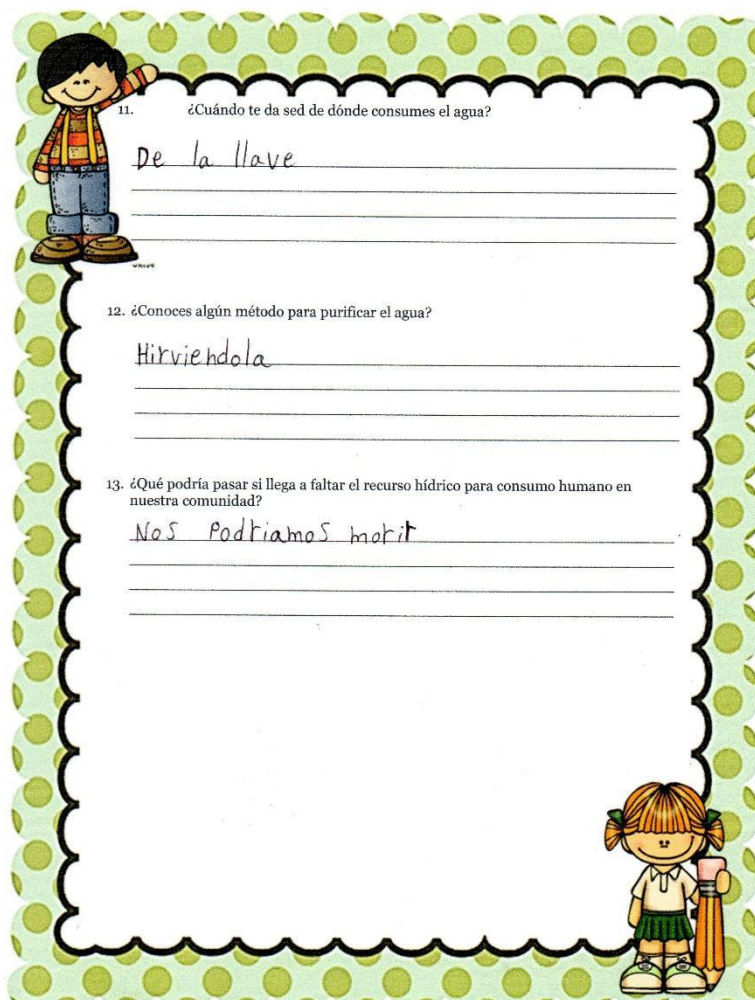 11. ¿Cuándo te da sed de dónde consumes el agua?
De la llave
12. ¿Conoces algún método para purificar el agua?
Hirviendola
13. ¿Qué podría pasar si llega a faltar el recurso hídrico para consumo humano en
nuestra comunidad?
Nos Podriamos morir